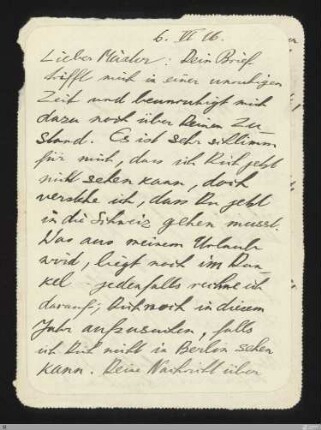 6. VI 16.
Lieber Meister: Dein Brief
trifft mich in einer unruhigen
Zeit und beunruhigt mich
dazu noch über Deinen Zu-
stand. Es ist sehr schlimm
für mich, dass ich Dich jetzt
nicht sehen kann, doch
verstehe ich, dass Du jetzt
in die Schweiz gehen musst.
Was aus meinem Urlaub
wird, liegt noch im Dun-
kel - jedenfalls rechne ich
darauf, Dich noch in diesem
Jahr aufzusuchen, falls
ich Dich nicht in Berlin sehen
kann. Deine Nachricht über